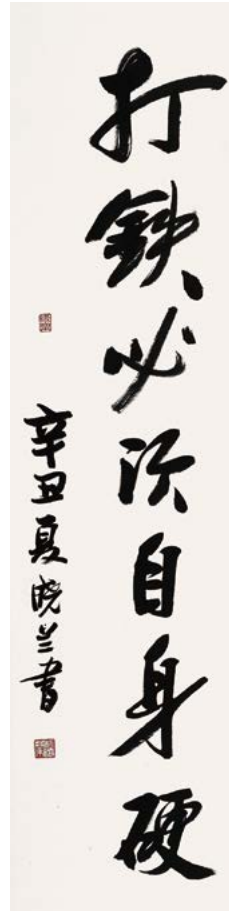 打鉄必须自身硬
辛丑夏晓兰書